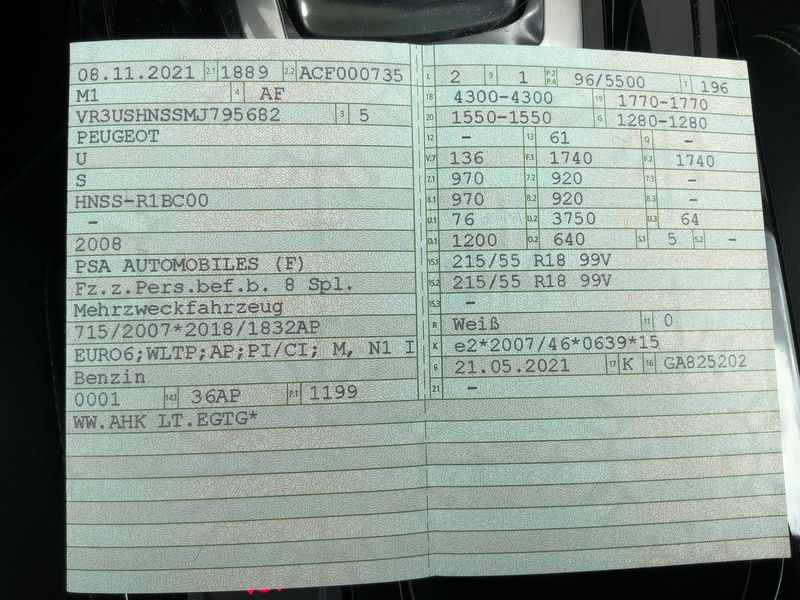 08.11.2021 2.1 1889 2.2 ACF000735
M1 4 AF
VR3USHNSSMJ795682 3 5
PEUGEOT
U
S
HNSS-R1BC00
-
2008
PSA AUTOMOBILES (F)
Fz.z.Pers.bef.b. 8 Spl.
Mehrzweckfahrzeug
715/2007*2018/1832AP
EURO6;WLTP;AP;PI/CI; M, N1 I
Benzin
0001 14.1 36AP P.1 1199
WW.AHK LT.EGTG*
L 2 9 1 P.2 P.4 96/5500 T 196
18 4300-4300 19 1770-1770
20 1550-1550 G 1280-1280
12 - 13 61 Q -
V.7 136 F.1 1740 F.2 1740
7.1 970 7.2 920 7.3 -
8.1 970 8.2 920 8.3 -
U.1 76 U.2 3750 U.3 64
O.1 1200 O.2 640 S.1 5 S.2 -
15.1 215/55 R18 99V
15.2 215/55 R18 99V
15.3 -
R Weiß 11 0
K e2*2007/46*0639*15
6 21.05.2021 17 K 16 GA825202
21 -